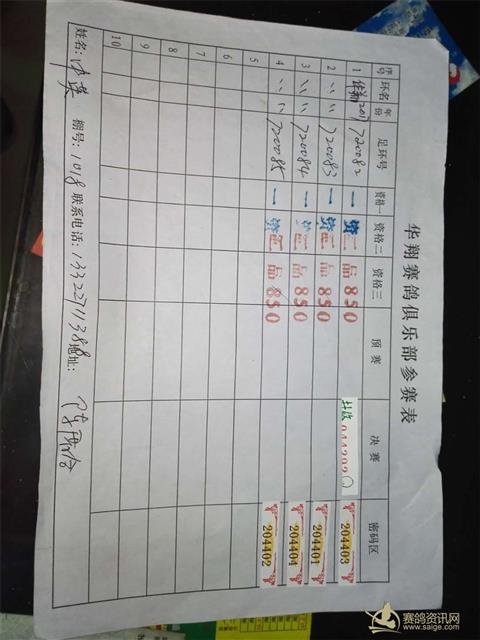 华翔赛鸽俱乐部参赛表
序号 环名 年份 足环号 资格一 资格二 资格三 预赛 决赛 密码区
1 华翔 2017 720082 一 资二 品850 204403
2 〃 〃 720083 一 资二 品850 204401
3 〃 〃 720084 一 资二 品850 204404
4 〃 〃 720085 一 资二 品850 204402
5
6
7
8
9
10
姓名: 棚号: 1018 联系电话: 13322711388 地址:
赛鸽资讯网
www.saige.com